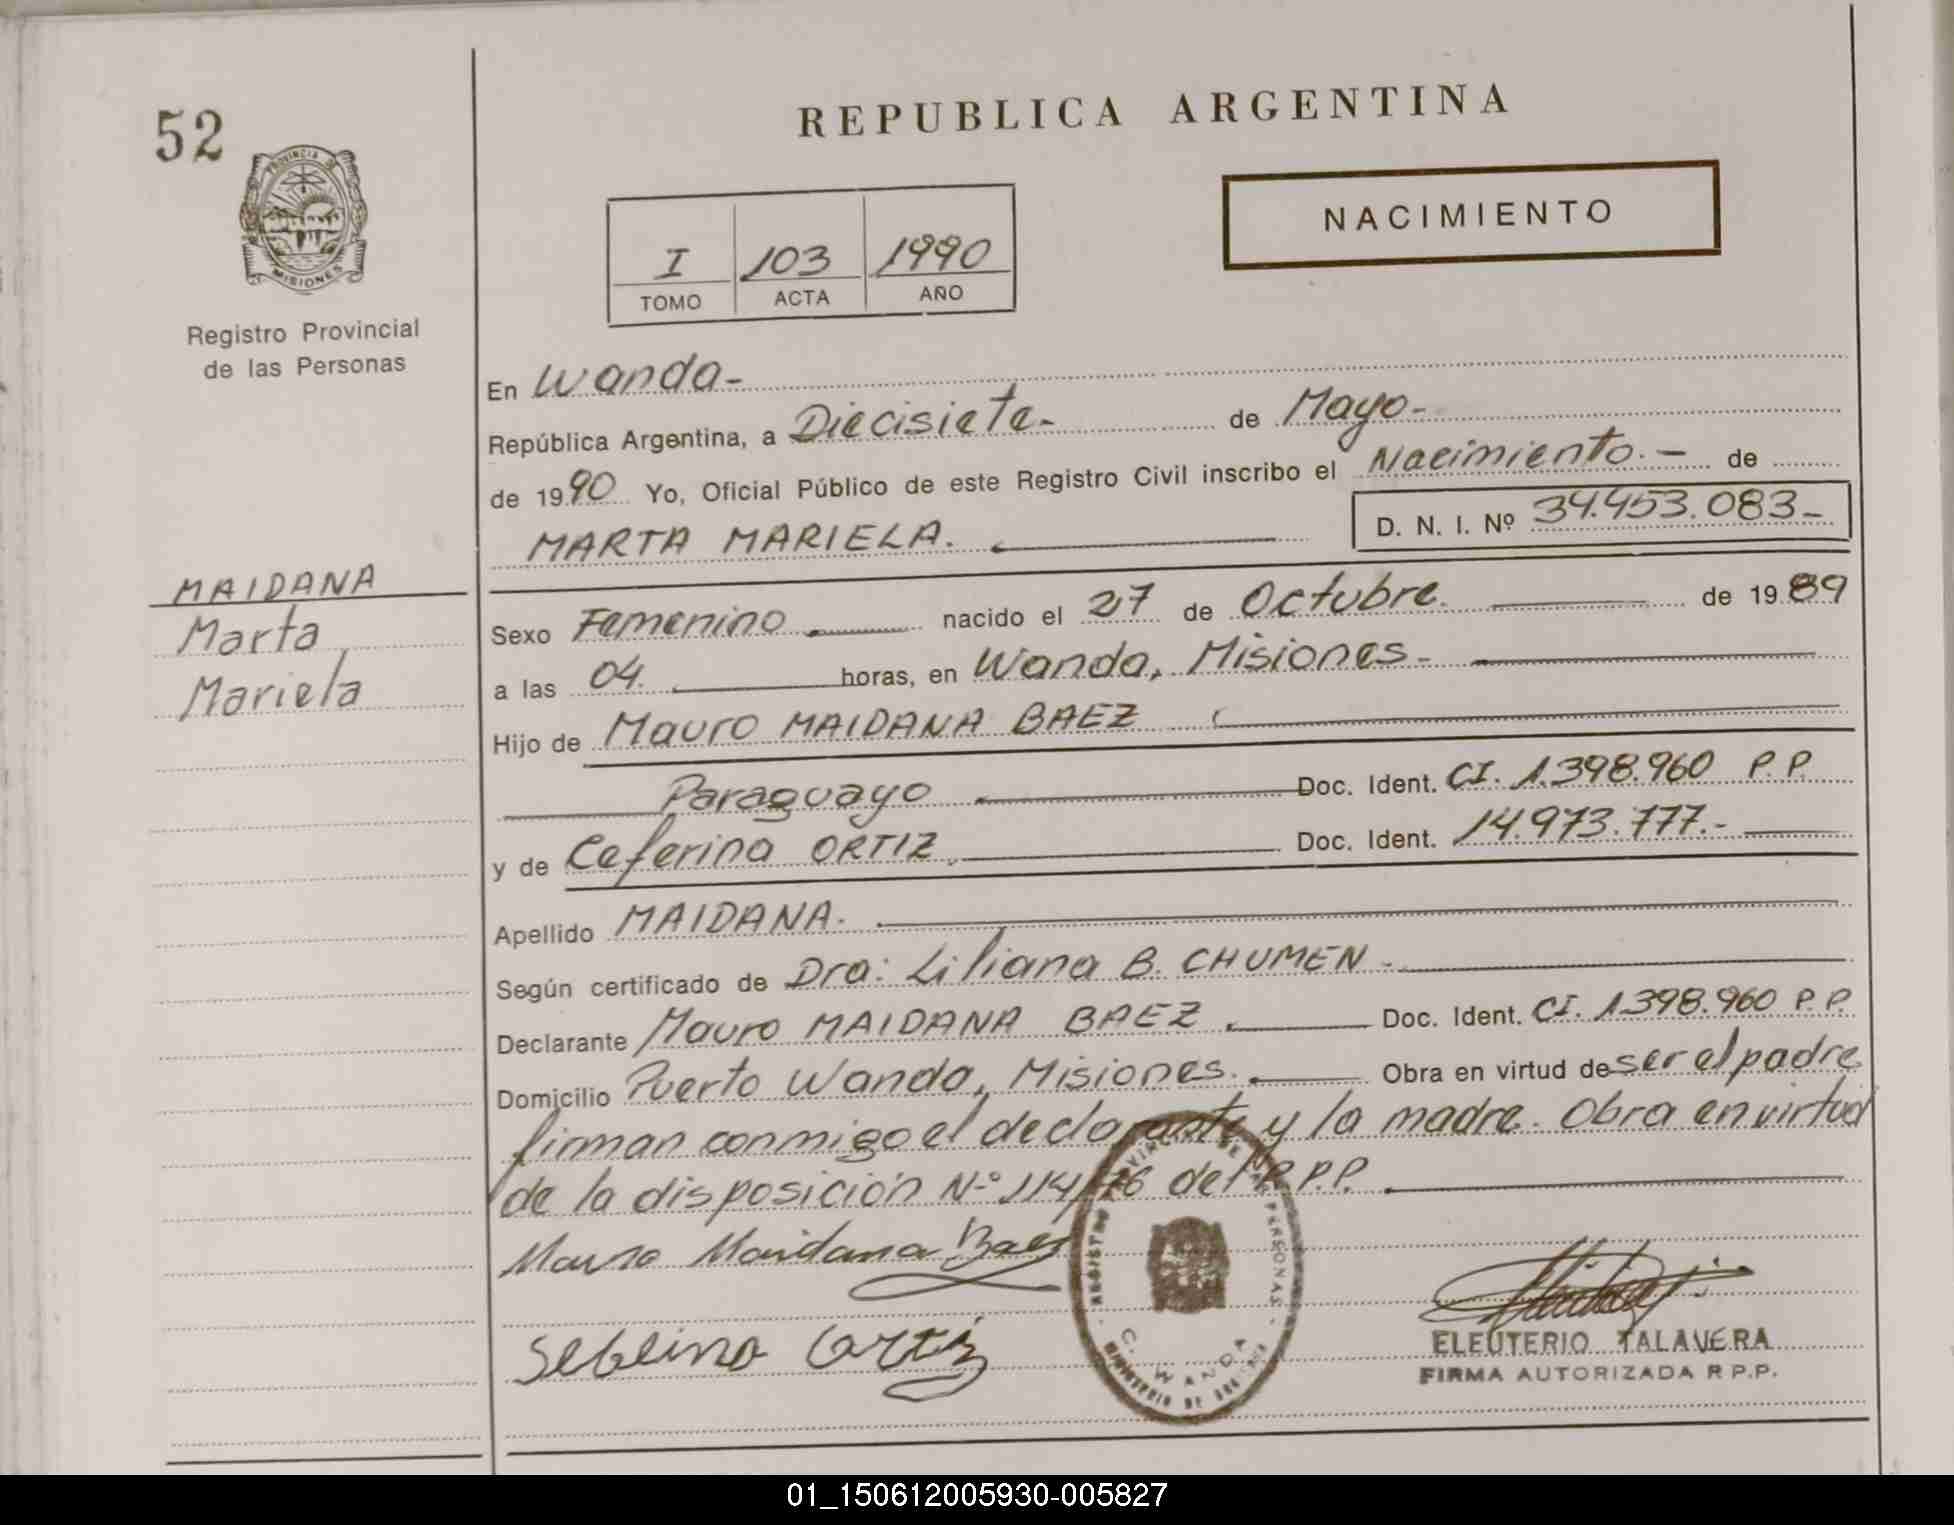 52
PROVINCIA DE
MISIONES
Registro Provincial
de las Personas
MAIDANA
Marta
Mariela
REPUBLICA ARGENTINA
NACIMIENTO
I 103 1990
TOMO ACTA AÑO
En Wanda-
República Argentina, a Diecisiete- de Mayo-
de 1990 Yo, Oficial Público de este Registro Civil inscribo el Nacimiento.- de
MARTA MARIELA. D. N. I. Nº 34.453.083-
Sexo Femenino. nacido el 27 de Octubre. de 1989
a las 04. horas, en Wanda, Misiones-
Hijo de Mauro MAIDANA BAEZ
Paraguayo Doc. Ident. CI. 1.398.960 P.P.
y de Ceferina ORTIZ. Doc. Ident. 14.973.777.-
Apellido MAIDANA.
Según certificado de Dra: Liliana B. CHUMEN-
Declarante Mauro MAIDANA BAEZ. Doc. Ident. CI. 1.398.960 P.P.
Domicilio Puerto Wanda, Misiones. Obra en virtud de ser el padre
firman conmigo el declarante y la madre. Obra en virtud
de la disposición Nº 114/76 del R.P.P.
Mauro Maidana Baes
REGISTRO PROVINCIAL DE LAS PERSONAS
C. WANDA
ELEUTERIO TALAVERA
FIRMA AUTORIZADA R P.P.
01_150612005930-005827